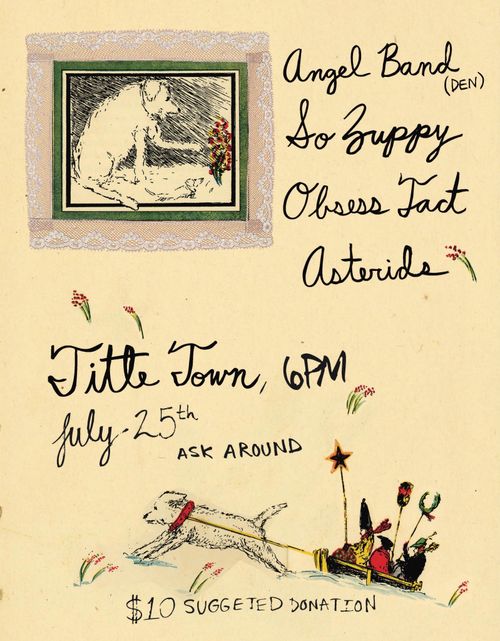 Angel Band
(DEN)
So Zuppy
Obsess Tact
Asterids
Title Town, 6PM
July-25th
ASK AROUND
$10 SUGGETED DONATION